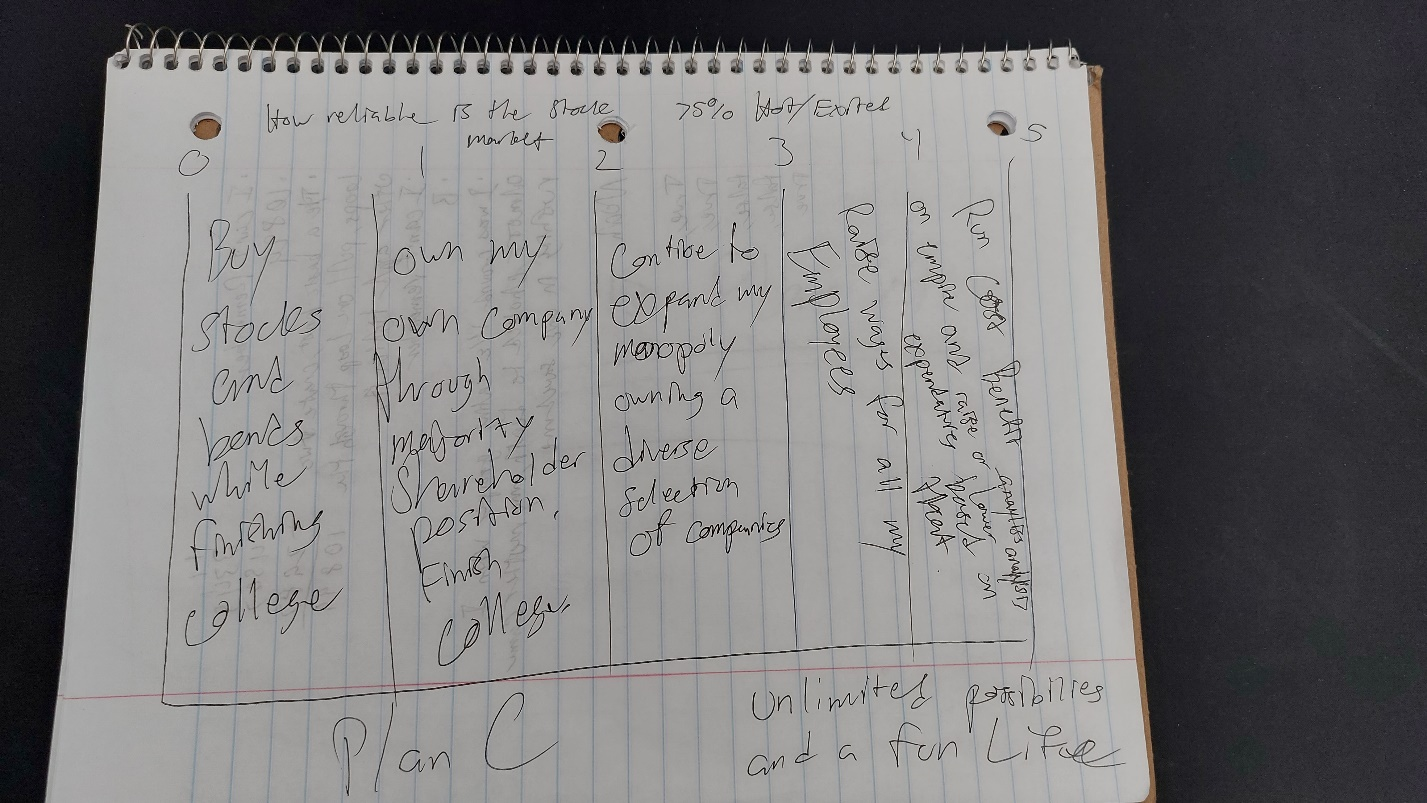 How reliable is the Stock
market
75% Hot/Exited
0 1 2 3 4 5
Buy
Stocks
and
while
finishing
college
own my
own company
through
majority
Shareholder
position.
Finish
college.
Contine to
expand my
monopoly
owning a
diverse
Selection
of companies
Raise wages for all my
Employees
Run Cost Benefit analysis
on empire and raise or lower
expenditures based on
Plan C
Unlimited possibilities
and a fun Life